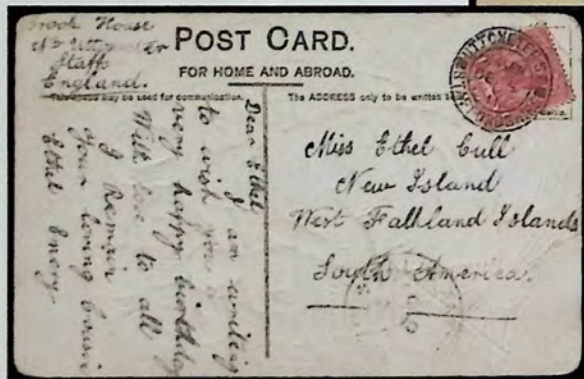 Brook House
Uttoxeter
Staffs
England.
POST CARD.
FOR HOME AND ABROAD.
This space may be used for communication.
The ADDRESS only to be written
Dear Ethel
I am writing
to wish you a
very happy birthday
With love to all
I Remain
your loving cousin
Ethel Emery
Miss Ethel Cull
New Island
West Falkland Islands
South America.